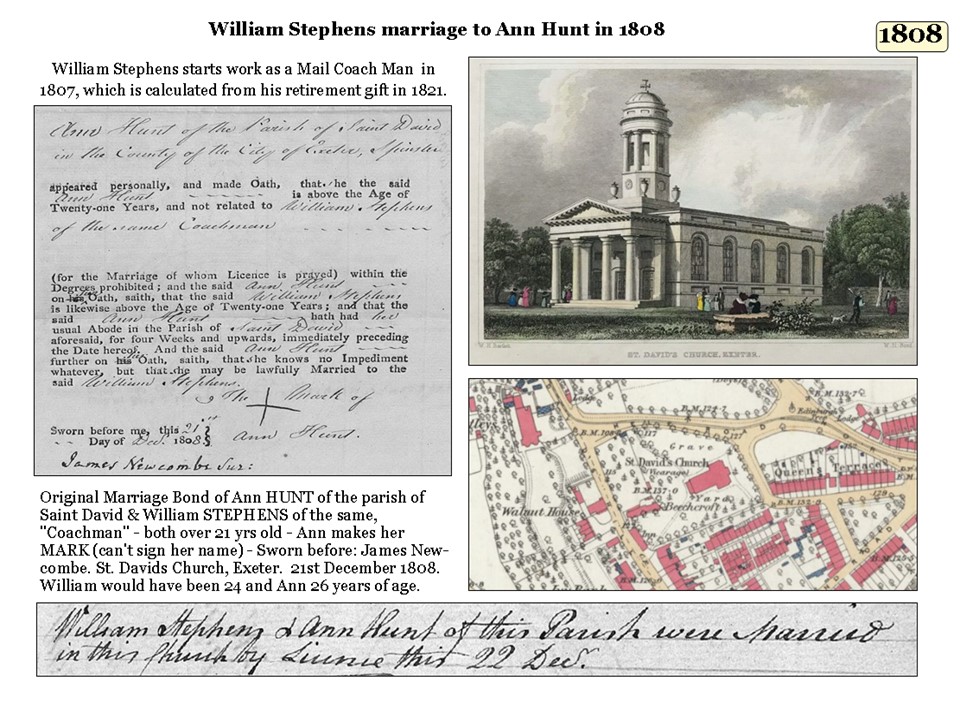 William Stephens marriage to Ann Hunt in 1808
1808
William Stephens starts work as a Mail Coach Man in
1807, which is calculated from his retirement gift in 1821.
Ann Hunt of the Parish of Saint David
in the County of the City of Exeter, Spinster
appeared personally, and made Oath, that she the said
Ann Hunt is above the Age of
Twenty-one Years, and not related to William Stephens
of the same Coachman
(for the Marriage of whom Licence is prayed) within the
Degrees prohibited; and the said Ann Hunt
on her Oath, saith, that the said William Stephens
is likewise above the Age of Twenty-one Years; and that the
said Ann Hunt hath had her
usual Abode in the Parish of Saint David
aforesaid, for four Weeks and upwards, immediately preceding
the Date hereof. And the said Ann Hunt
further on Oath, saith, that she knows no Impediment
whatever, but that she may be lawfully Married to the
said William Stephens.
The Mark of
Sworn before me, this 21st
Day of Dec. 1808
Ann Hunt.
James Newcombe Sur:
W.H. Bartlett
ST. DAVID'S CHURCH, EXETER.
Lodge
B.M. 127.7
B.M. 132.7
117
127
Grave
St David's Church
(Vicarage)
B.M. 137.0
Yard
Beechcroft
Walnut House
Inn
Queen's Terrace
Original Marriage Bond of Ann HUNT of the parish of
Saint David & William STEPHENS of the same,
"Coachman" - both over 21 yrs old - Ann makes her
MARK (can't sign her name) - Sworn before: James New-
combe. St. Davids Church, Exeter. 21st December 1808.
William would have been 24 and Ann 26 years of age.
William Stephens & Ann Hunt of this Parish were Married
in this Church by Licence this 22 Decr.